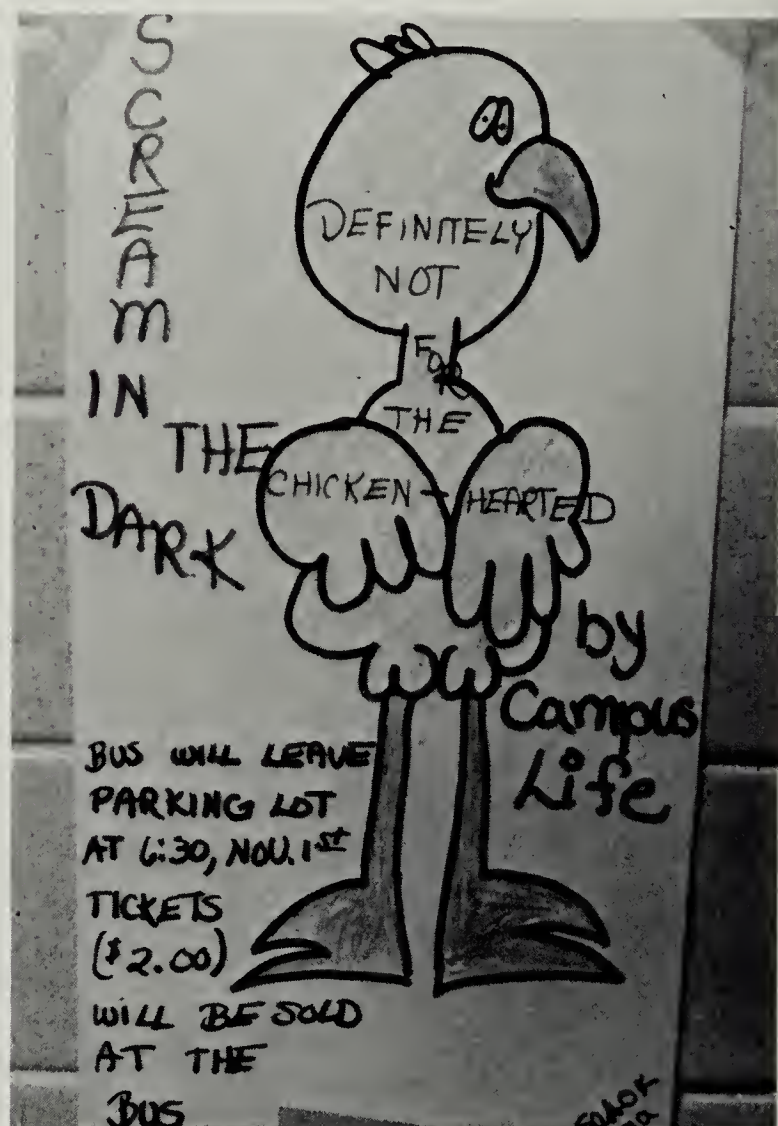 SCREAM
IN
THE
DARK
DEFINITELY
NOT
FOR
THE
CHICKEN-HEARTED
by
Campus
Life
BUS WILL LEAVE
PARKING LOT
AT 6:30, NOV. 1st
TICKETS
($2.00)
WILL BE SOLD
AT THE
BUS